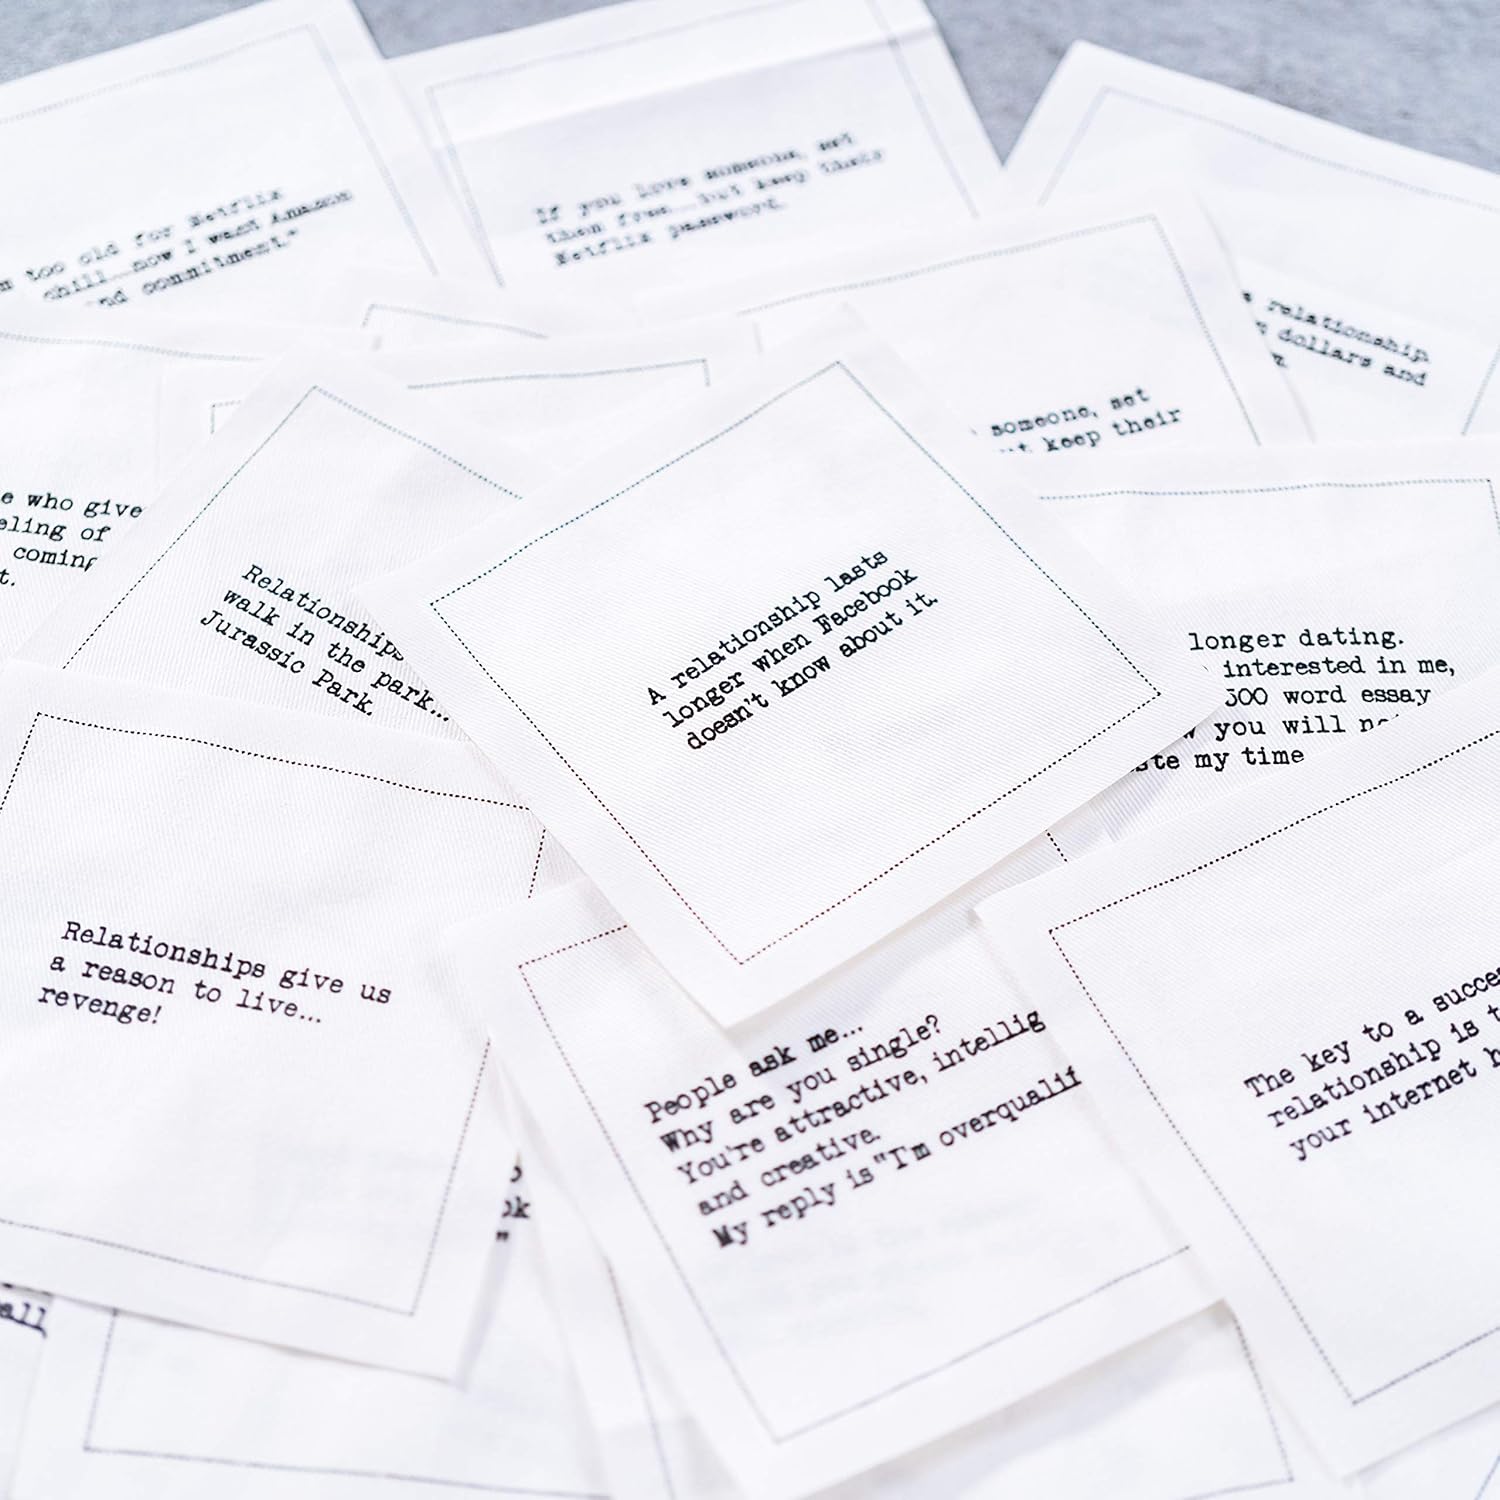 m too old for Netflix
chill...now I want Amazon
nd commitment."
If you love someone, set
them free...but keep their
Netflix password.
s relationship
dollars and
someone, set
ut keep their
e who give
eling of
coming
t.
Relationships
walk in the park...
Jurassic Park.
A relationship lasts
longer when Facebook
doesn't know about it.
longer dating.
interested in me,
300 word essay
w you will no
ste my time
Relationships give us
a reason to live...
revenge!
People ask me...
Why are you single?
You're attractive, intellig
and creative.
My reply is "I'm overqualif
The key to a succes
relationship is t
your internet h
ok
"
all